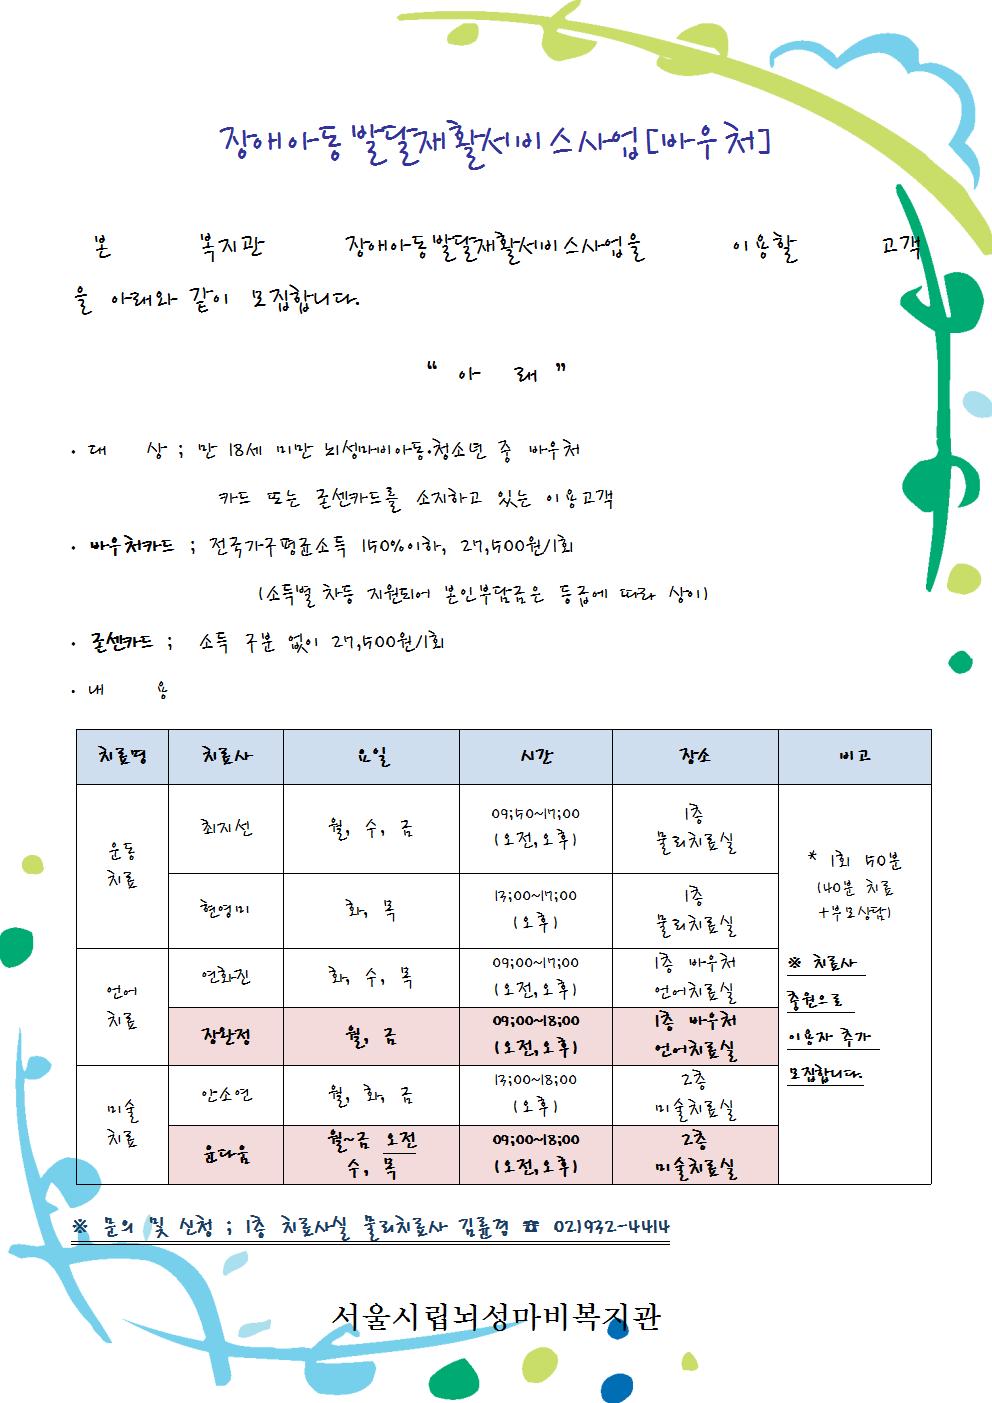 장애아동발달재활서비스사업[바우처]
본 복지관 장애아동발달재활서비스사업을 이용할 고객
을 아래와 같이 모집합니다.
“ 아 래 ”
· 대 상 ; 만 18세 미만 뇌성마비아동·청소년 중 바우처
카드 또는 굳센카드를 소지하고 있는 이용고객
· 바우처카드 ; 전국가구평균소득 150%이하, 27,500원/1회
(소득별 차등 지원되어 본인부담금은 등급에 따라 상이)
· 굳센카드 ; 소득 구분 없이 27,500원/1회
· 내 용
치료명 치료사 요일 시간 장소 비고
운동
치료
최지선
월, 수, 금
09;50~17;00
(오전,오후)
1층
물리치료실
현영미
화, 목
13;00~17;00
(오후)
1층
물리치료실
언어
치료
연화진
화, 수, 목
09;00~17;00
(오전,오후)
1층 바우처
언어치료실
장완정
월, 금
09;00~18;00
(오전,오후)
1층 바우처
언어치료실
미술
치료
안소연
월, 화, 금
13;00~18;00
(오후)
2층
미술치료실
윤다움
월~금 오전
수, 목
09;00~18;00
(오전,오후)
2층
미술치료실
* 1회 50분
(40분 치료
+부모상담)
※ 치료사
증원으로
이용자 추가
모집합니다.
※ 문의 및 신청 ; 1층 치료사실 물리치료사 김륜경 ☎ 02)932-4414
서울시립뇌성마비복지관